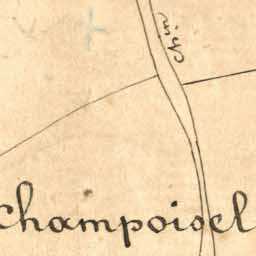 Chin
Champoisel